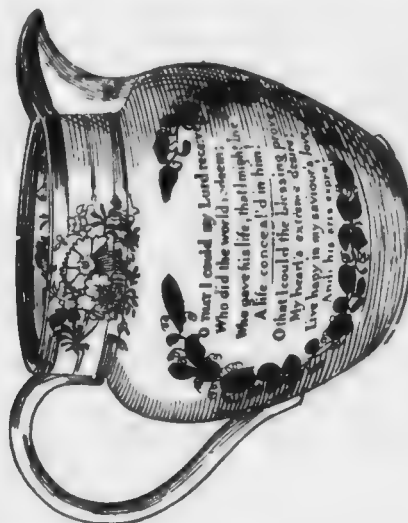 O that I could my Lord receiv
Who did the world redeem;
Who gave his life, that I might live
A life conceal'd in him!
O that I could the blessing prove
My heart's extreme desire,
Live happy in my saviour's love
And in his arms expire!